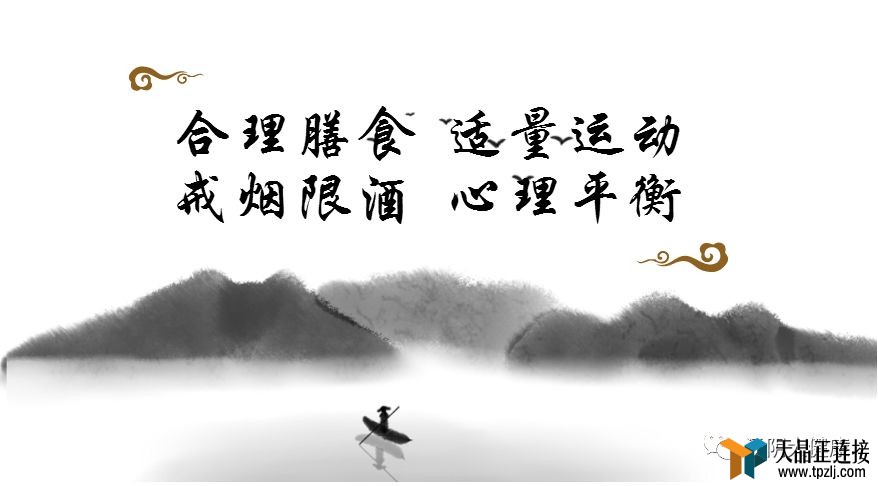 合理膳食 适量运动
戒烟限酒 心理平衡
天品正连接
www.tpzlj.com